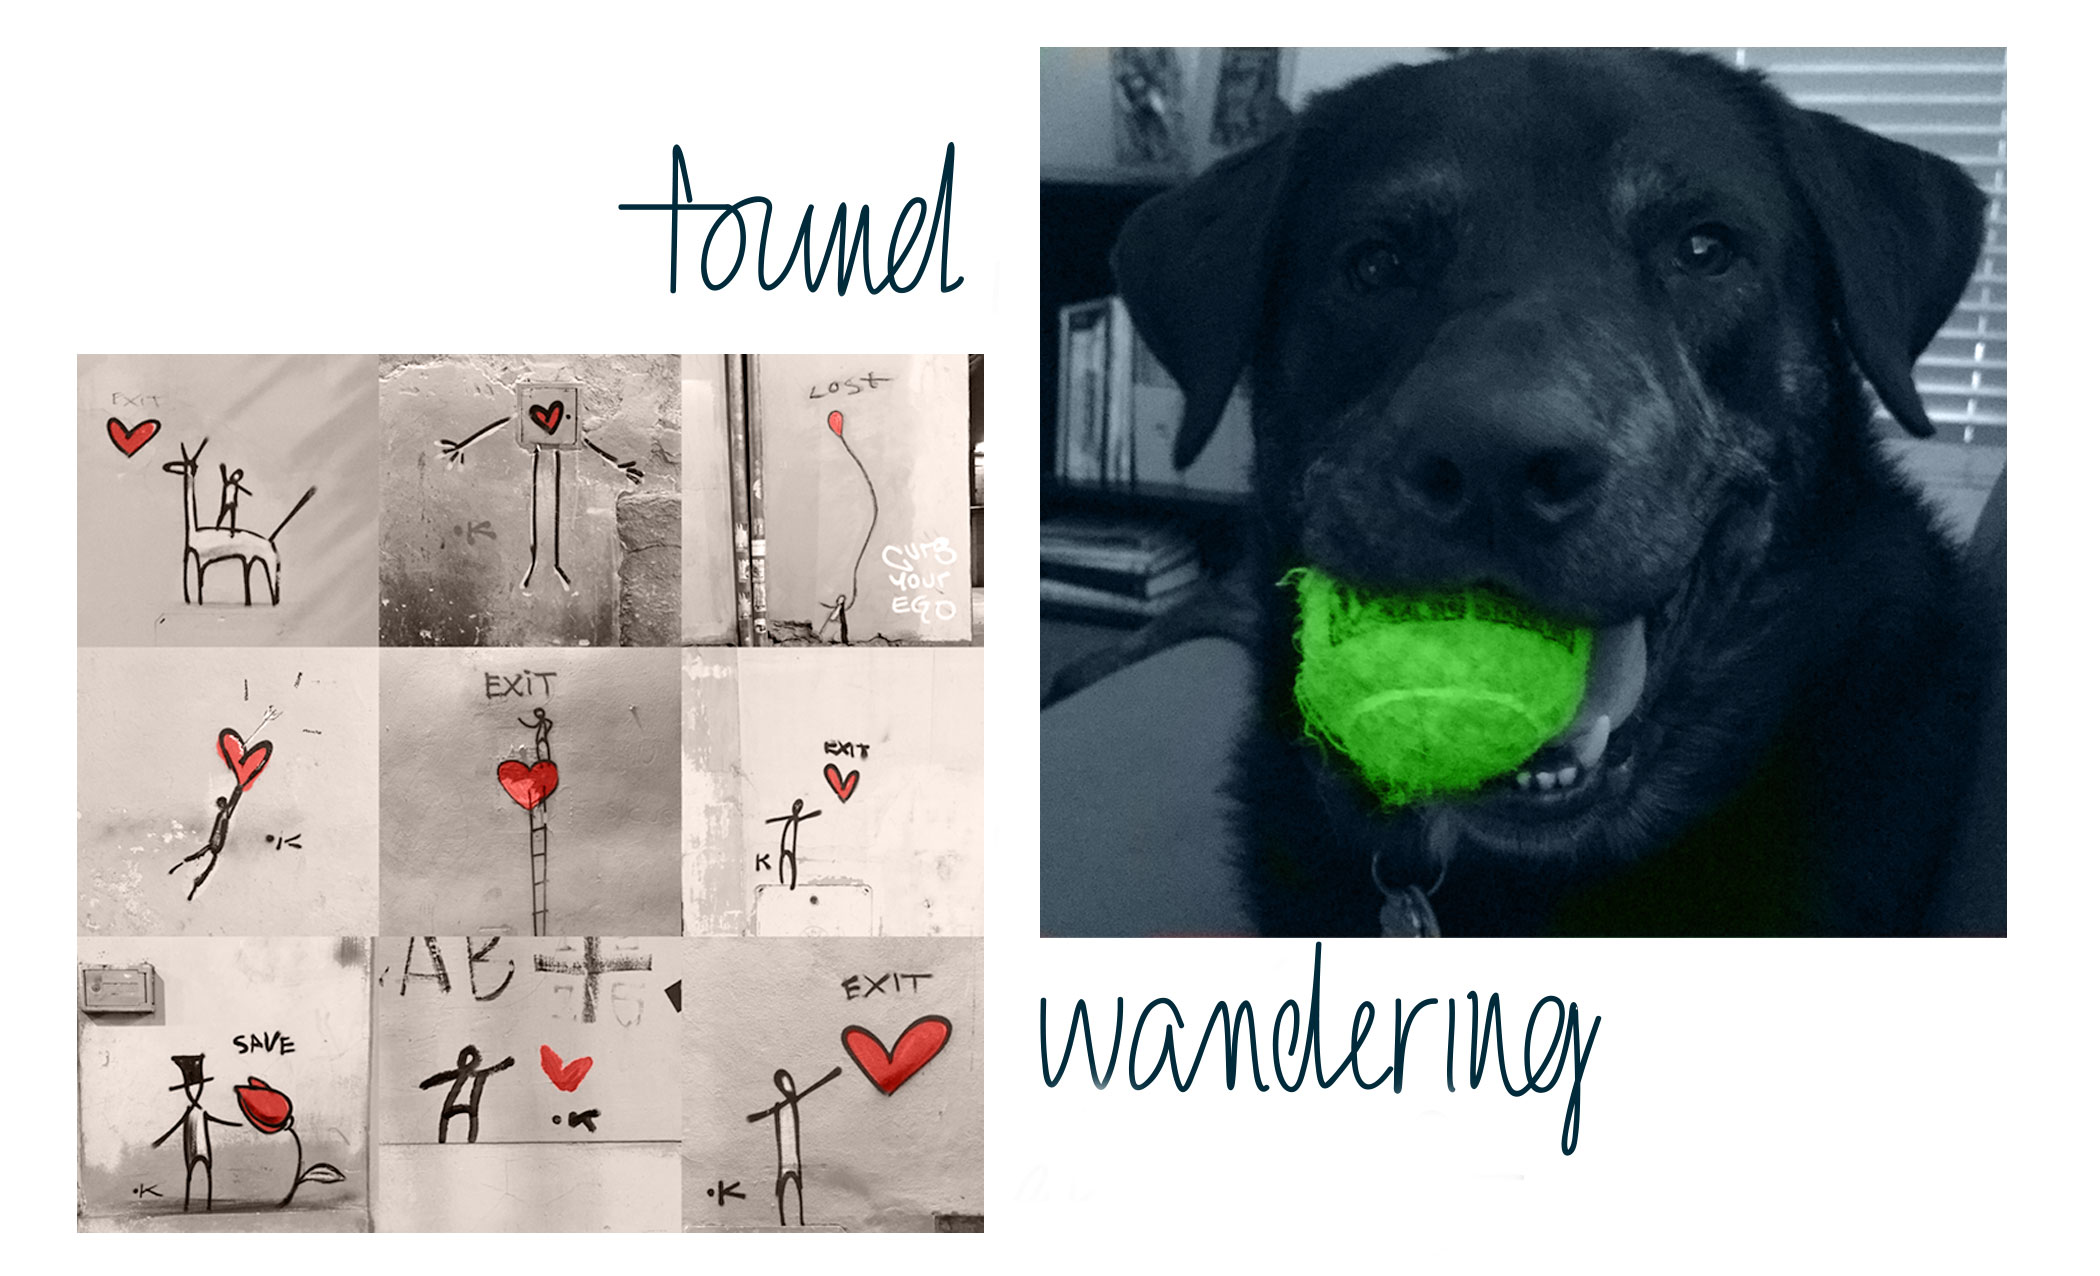 found
EXIT
•K
LOST
CURB
YOUR
EGO
•K
EXIT
EXIT
K
SAVE
•K
AB
•K
EXIT
•K
wandering